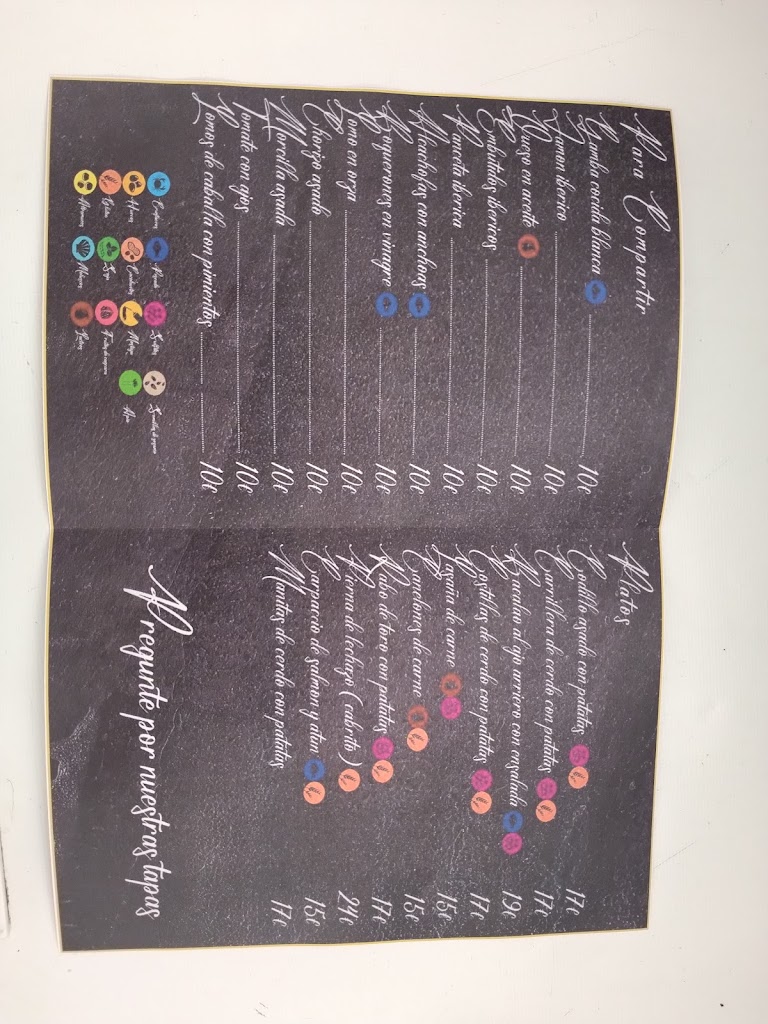 Para Compartir
Gamba cocida blanca 10€
Jamon iberico 10€
Queso en aceite 10€
Embutidos ibericos 10€
Panceta iberica 10€
Alcachofas con anchoas 10€
Boquerones en vinagre 10€
Lomo en orza 10€
Chorizo asado 10€
Morcilla asada 10€
Tomate con ajos 10€
Lomos de caballa con pimientos 10€
Crustáceos Pescado Sulfitos Granos de sésamo
Huevos Cacahuetes Mostaza Apio
Gluten Soja Frutos de cáscara
Altramuces Moluscos Lácteos
Platos
Codillo asado con patatas 17€
Carrillera de cerdo con patatas 17€
Bacalao al ajo arriero con ensalada 19€
Costillas de cerdo con patatas 17€
Lasaña de carne 15€
Canelones de carne 15€
Rabo de toro con patatas 17€
Pierna de lechazo ( cabrito ) 24€
Carpaccio de salmon y atun 15€
Manitas de cerdo con patatas 17€
Pregunte por nuestras tapas